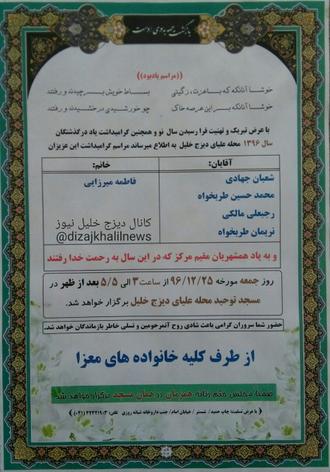 بازگشت همه بسوی اوست
((مراسم یادبود))
خوشا آنانکه که با عزت ز گیتی    بساط خویش برچیدند و رفتند
خوشا آنانکه بر این عرصه خاک    چو خورشیدی درخشیدند و رفتند
با عرض تبریک و تهنیت فرا رسیدن سال نو و همچنین گرامیداشت یاد درگذشتگان
سال ۱۳۹۶ محله علیای دیزج خلیل به اطلاع میرساند مراسم گرامیداشت این عزیزان
آقایان:
شعبان جهادی
محمد حسین طریخواه
رجبعلی مالکی
نریمان طریخواه
خانم:
فاطمه میرزایی
کانال دیزج خلیل نیوز
@dizajkhalilnews
و به یاد همشهریان مقیم مرکز که در این سال به رحمت خدا رفتند
روز جمعه مورخه ۹۶/۱۲/۲۵ از ساعت ۳ الی ۵/۵ بعد از ظهر در
مسجد توحید محله علیای دیزج خلیل برگزار خواهد شد.
حضور شما سروران گرامی باعث شادی روح آنمرحومین و تسلی خاطر بازماندگان خواهد شد.
از طرف کلیه خانواده های معزا
ضمنا مجلس ختم زنانه همزمان در همان مسجد برگزار خواهد شد